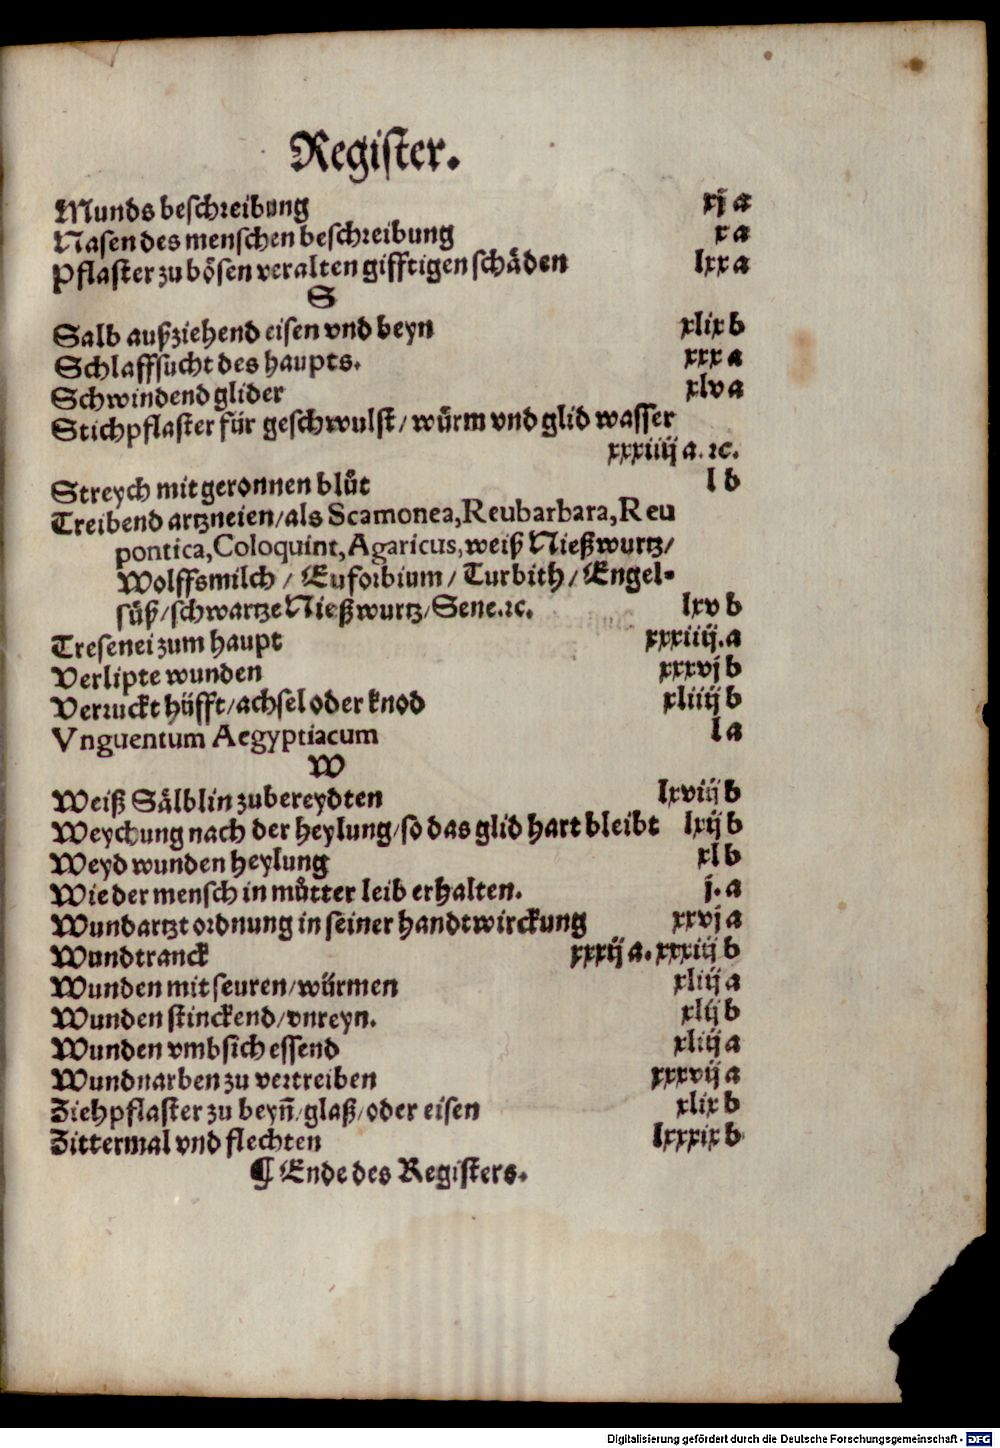 Register.
Munds beschreibung xj a
Nasen des menschen beschreibung x a
Pflaster zu bösen veralten gifftigen schäden lxx a
S
Salb außziehend eisen vnd beyn xlix b
Schlaffsucht des haupts. xxx a
Schwindend glider xlv a
Stichpflaster für geschwulst/ würm vnd glid wasser
xxxiiij a. ꝛc.
Streych mit geronnen blůt l b
Treibend artzneien/als Scamonea,Reubarbara,Reu
pontica,Coloquint,Agaricus,weiß Nießwurtz/
Wolffsmilch / Euforbium / Turbith / Engel-
süß/schwartze Nießwurtz/Sene.ꝛc. lxv b
Tresenei zum haupt xxxiiij.a
Verlipte wunden xxxvj b
Verruckt hüfft/achsel oder knod xliiij b
Vnguentum Aegyptiacum l a
W
Weiß Sälblin zubereydten lxviij b
Weychung nach der heylung/so das glid hart bleibt lxij b
Weyd wunden heylung xl b
Wie der mensch in můtter leib erhalten. j. a
Wundartzt ordnung in seiner handtwirckung xxvj a
Wundtranck xxxij a. xxxiij b
Wunden mit seuren/würmen xliij a
Wunden stinckend/vnreyn. xlij b
Wunden vmbsich essend xliij a
Wundnarben zu vertreiben xxxvij a
Ziehpflaster zu beyn̄/glaß/oder eisen xlix b
Zittermal vnd flechten lxxxix b
¶ Ende des Registers.
Digitalisierung gefördert durch die Deutsche Forschungsgemeinschaft - DFG